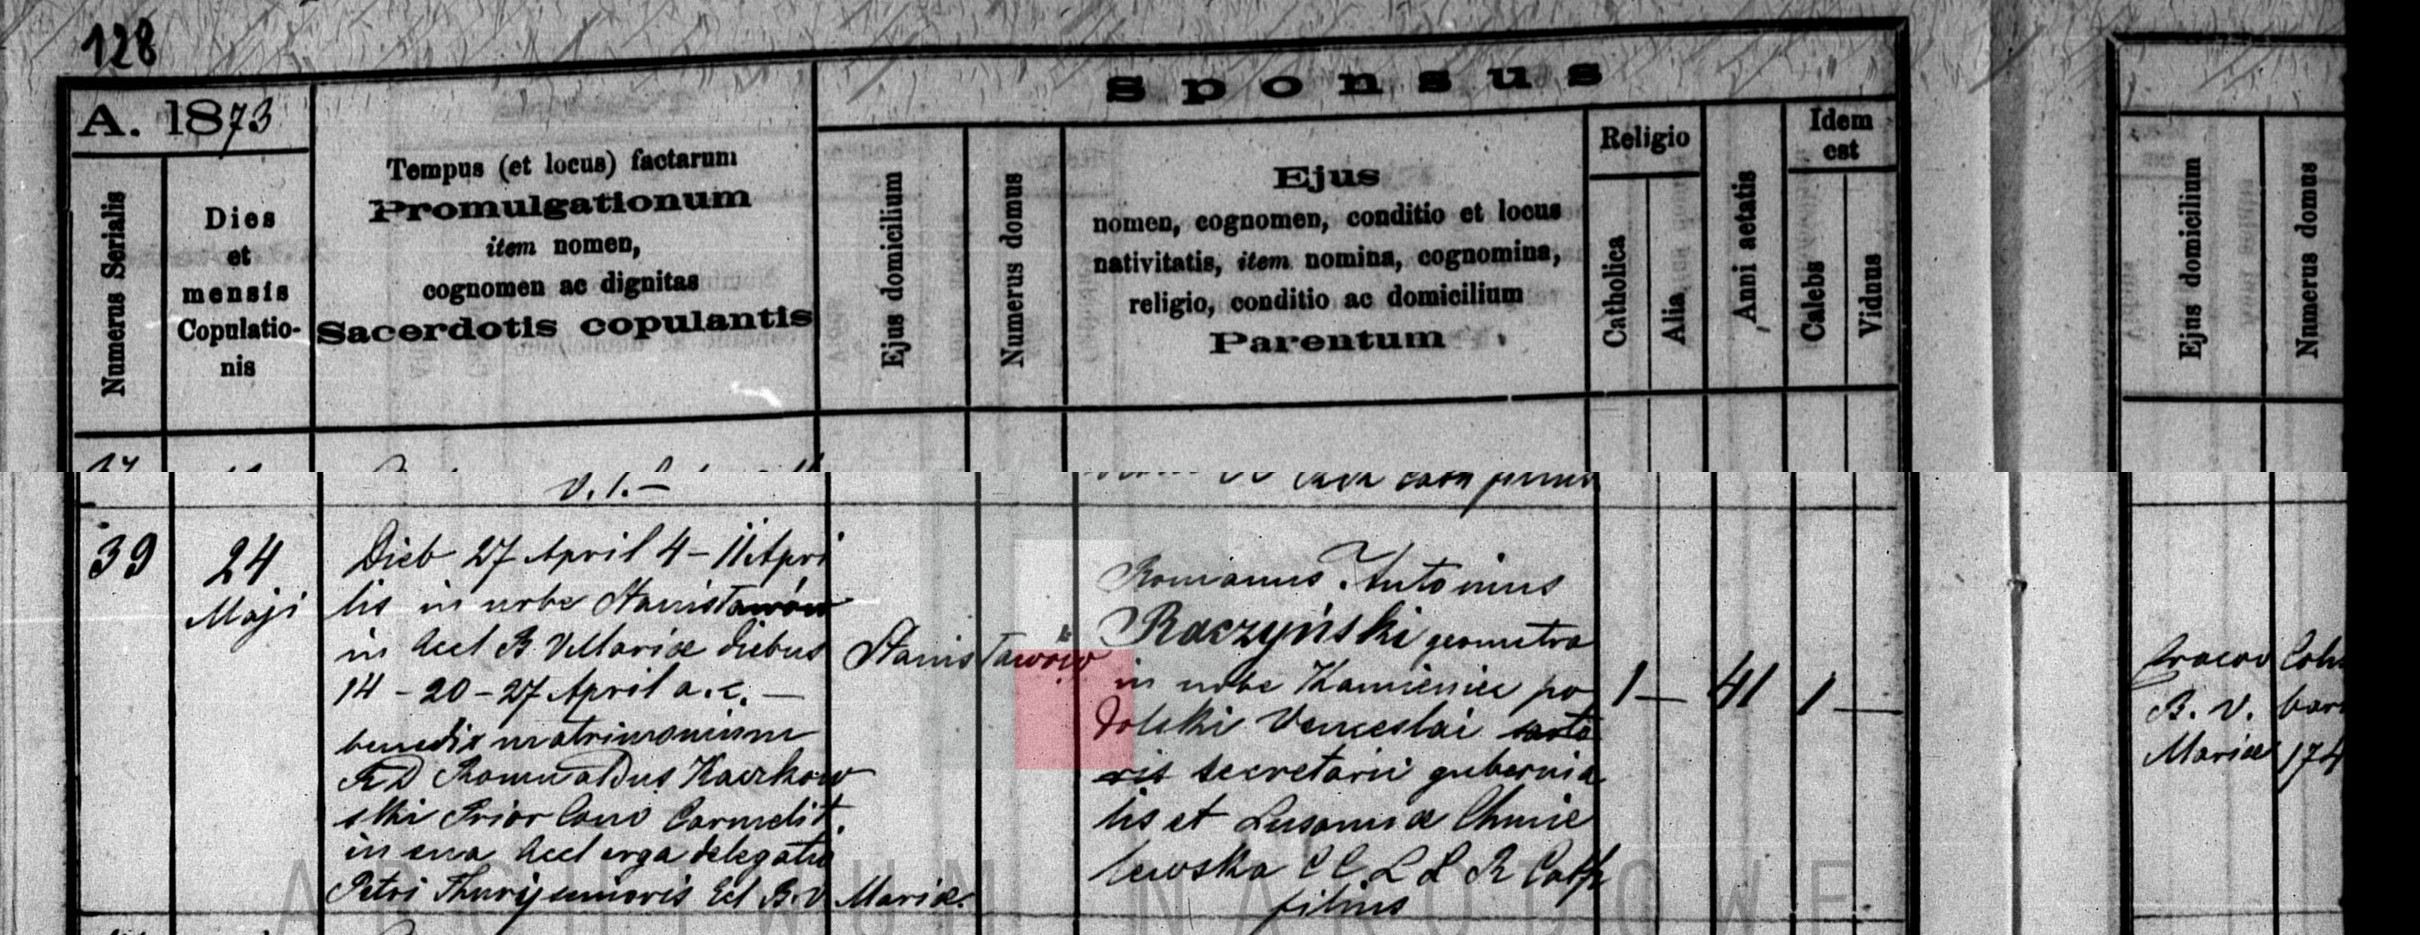 128
A. 1873
Numerus Serialis
Dies
et
mensis
Copulatio-
nis
Tempus (et locus) factarum
Promulgationum
item nomen,
cognomen ac dignitas
Sacerdotis copulantis
Sponsus
Ejus domicilium
Numerus domus
Ejus
nomen, cognomen, conditio et locus
nativitatis, item nomina, cognomina,
religio, conditio ac domicilium
Parentum
Religio
Catholica
Alia
Anni aetatis
Idem
est
Calebs
Viduus
Ejus domicilium
Numerus domus
V. T. —
39
24
Maji
Dieb 27 April 4 - 11 Apri
lis in urbe Stanisławów
in Accl B. V Mariæ diebus
14 - 20 - 27 April a. c. —
benedix matrimonium
R D Romualdus Kaczkow
ski Prior Conv Carmelit.
in sua Accl erga delegatio
Petri Thury senioris Ecl B. V. Mariæ.
Stanisławów
Romanus Antonius
Raczyński geometra
in urbe Kamieniec po
dolski Venceslai
secretarii gubernia
lis et Susannæ Chmie
lewska C C L L R Cath
filius
1 — 41 1 —
Cracov
B. V.
Mariæ
174
ARCHIWUM NARODOWE